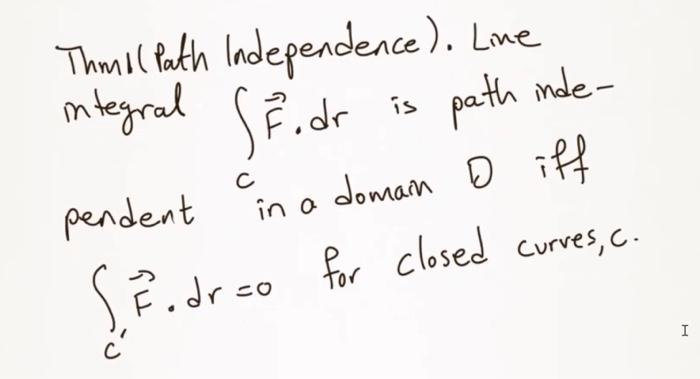 Thm1(Path Independence). Line
integral ∫_C F⃗.dr is path inde-
pendent in a domain D iff
∫_C' F⃗.dr=0 for closed curves, c.